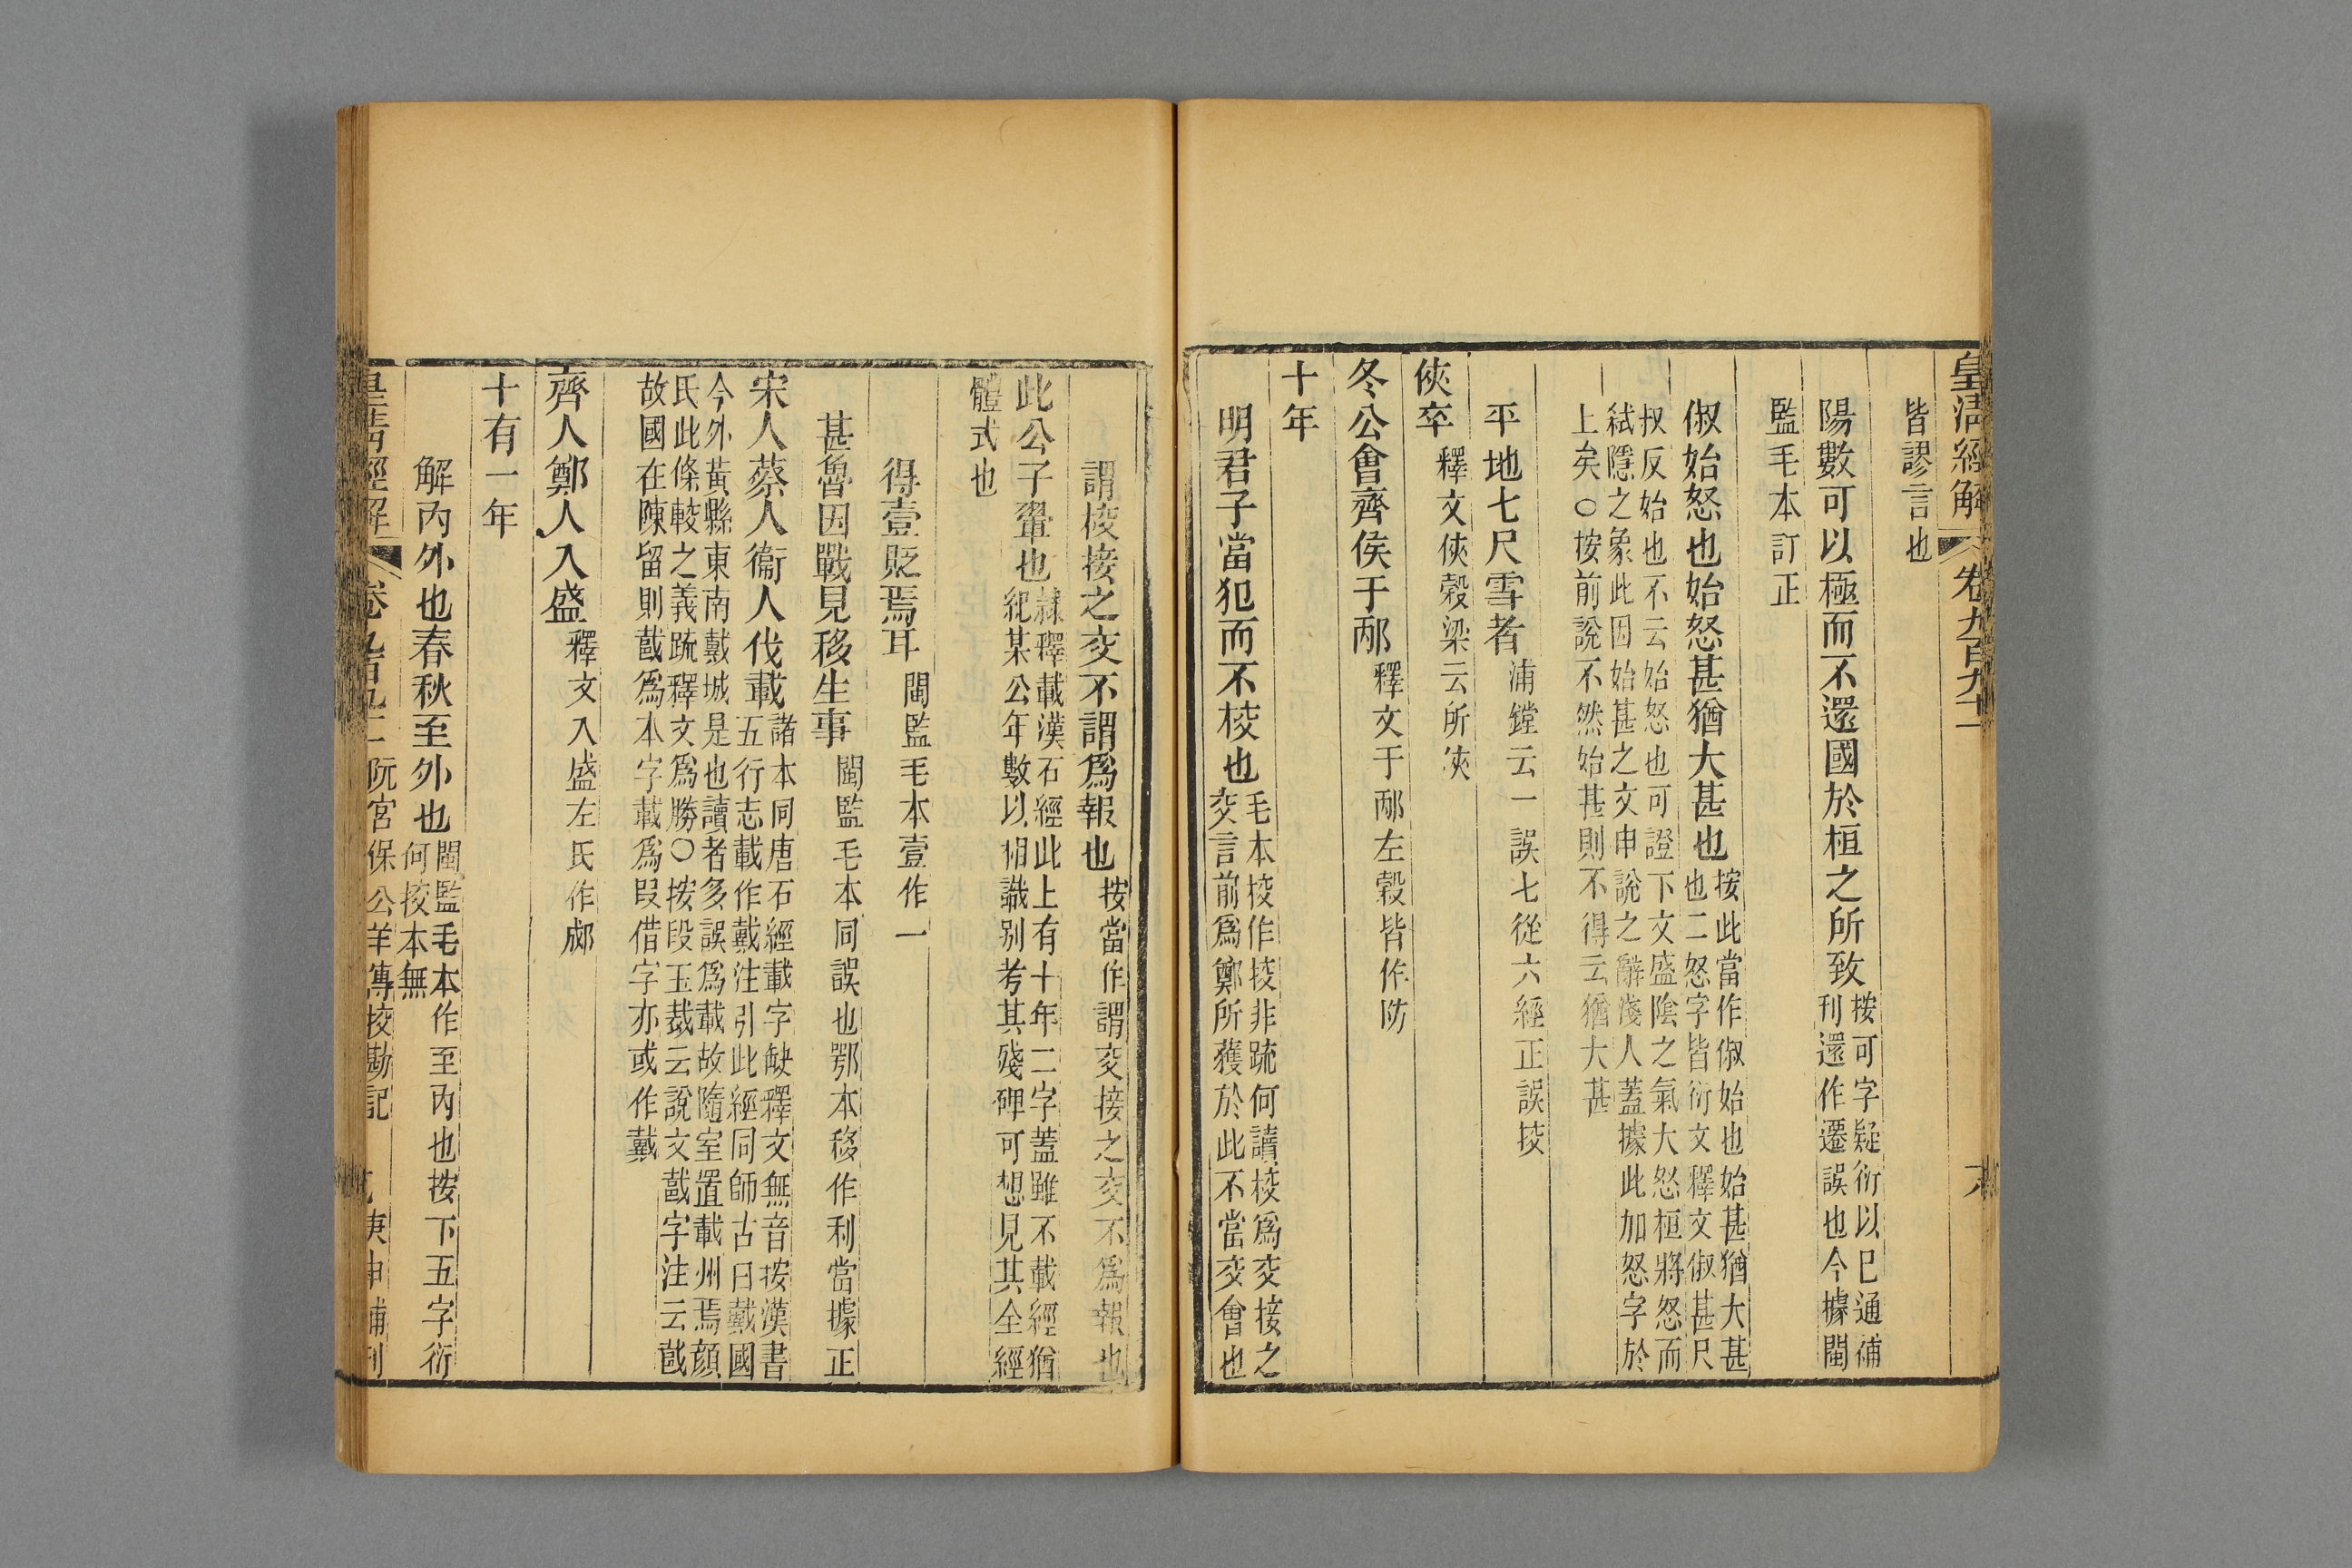 皇清經解 卷九百九十二 六
皆謬言也
陽數可以極而不還國於桓之所致按可字疑衍以巳通補
刊還作遷誤也今據閩
監毛本訂正
俶始怒也始怒甚猶大甚也按此當作俶始也始甚猶大甚
也二怒字皆衍文釋文俶甚尺
叔反始也不云始怒也可證下文盛陰之氣大怒桓將怒而
弑隱之象此因始甚之文申說之辭淺人蓋據此加怒字於
上矣○按前說不然始甚則不得云猶大甚
平地七尺雪者浦鏜云一誤七從六經正誤挍
俠卒釋文俠榖梁云所俠
冬公會齊侯于邴釋文于邴左榖皆作防
十年
明君子當犯而不挍也毛本挍作按非疏何讀挍爲交接之
交言前爲鄭所獲於此不當交會也
謂挍接之交不謂爲報也按當作謂交接之交不爲報也
此公子翬也隸釋載漢石經此上有十年二字蓋雖不載經猶
紀某公年數以相識别考其殘碑可想見其全經
體式也
得壹貶焉耳閩監毛本壹作一
甚魯因戰見移生事閩監毛本同誤也鄂本移作利當據正
宋人蔡人衞人伐載諸本同唐石經載字缺釋文無音按漢書
五行志載作戴注引此經同師古曰戴國
今外黃縣東南戴城是也讀者多誤爲載故隨室置載州焉顔
氏此條較之義疏釋文爲勝○按段玉裁云說文𢧵字注云𢧵
故國在陳留則𢧵爲本字載爲叚借字亦或作戴
齊人鄭人入盛釋文入盛左氏作郕
十有一年
解內外也春秋至外也閩監毛本作至內也按下五字衍
何挍本無
皇清經解 卷九百九十二 阮宮保公羊傳挍勘記 庚申補刊